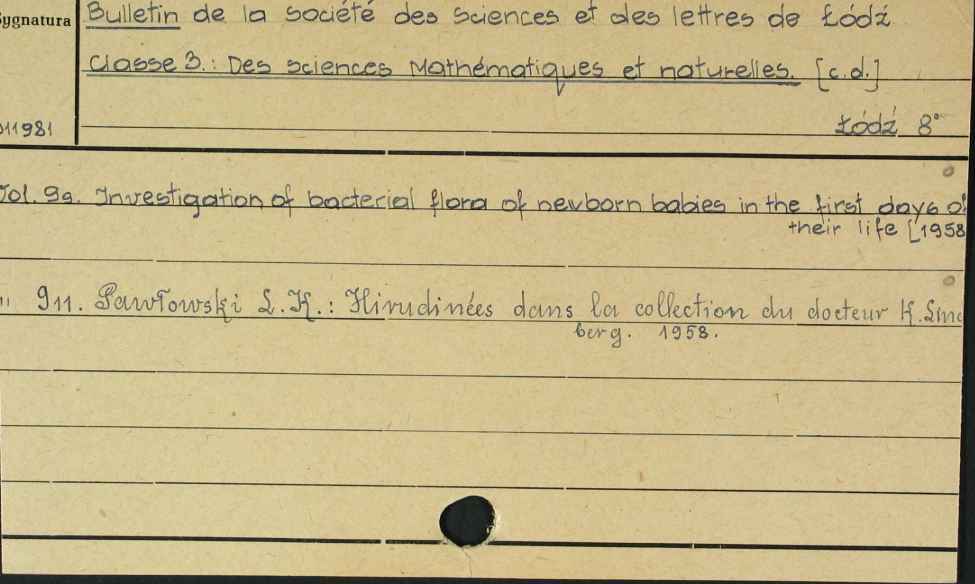 Sygnatura
Bulletin de la société des Sciences et des lettres de Łódź
Classe 3.: Des sciences Mathématiques et naturelles. [c.d.]
011981
Łódź 8°
Vol. 9. Investigation of bacterial flora of newborn babies in the first days of
their life [1958
" 9,11. Pawłowski L.K.: Hirudinées dans la collection du docteur K. Lind
berg. 1958.